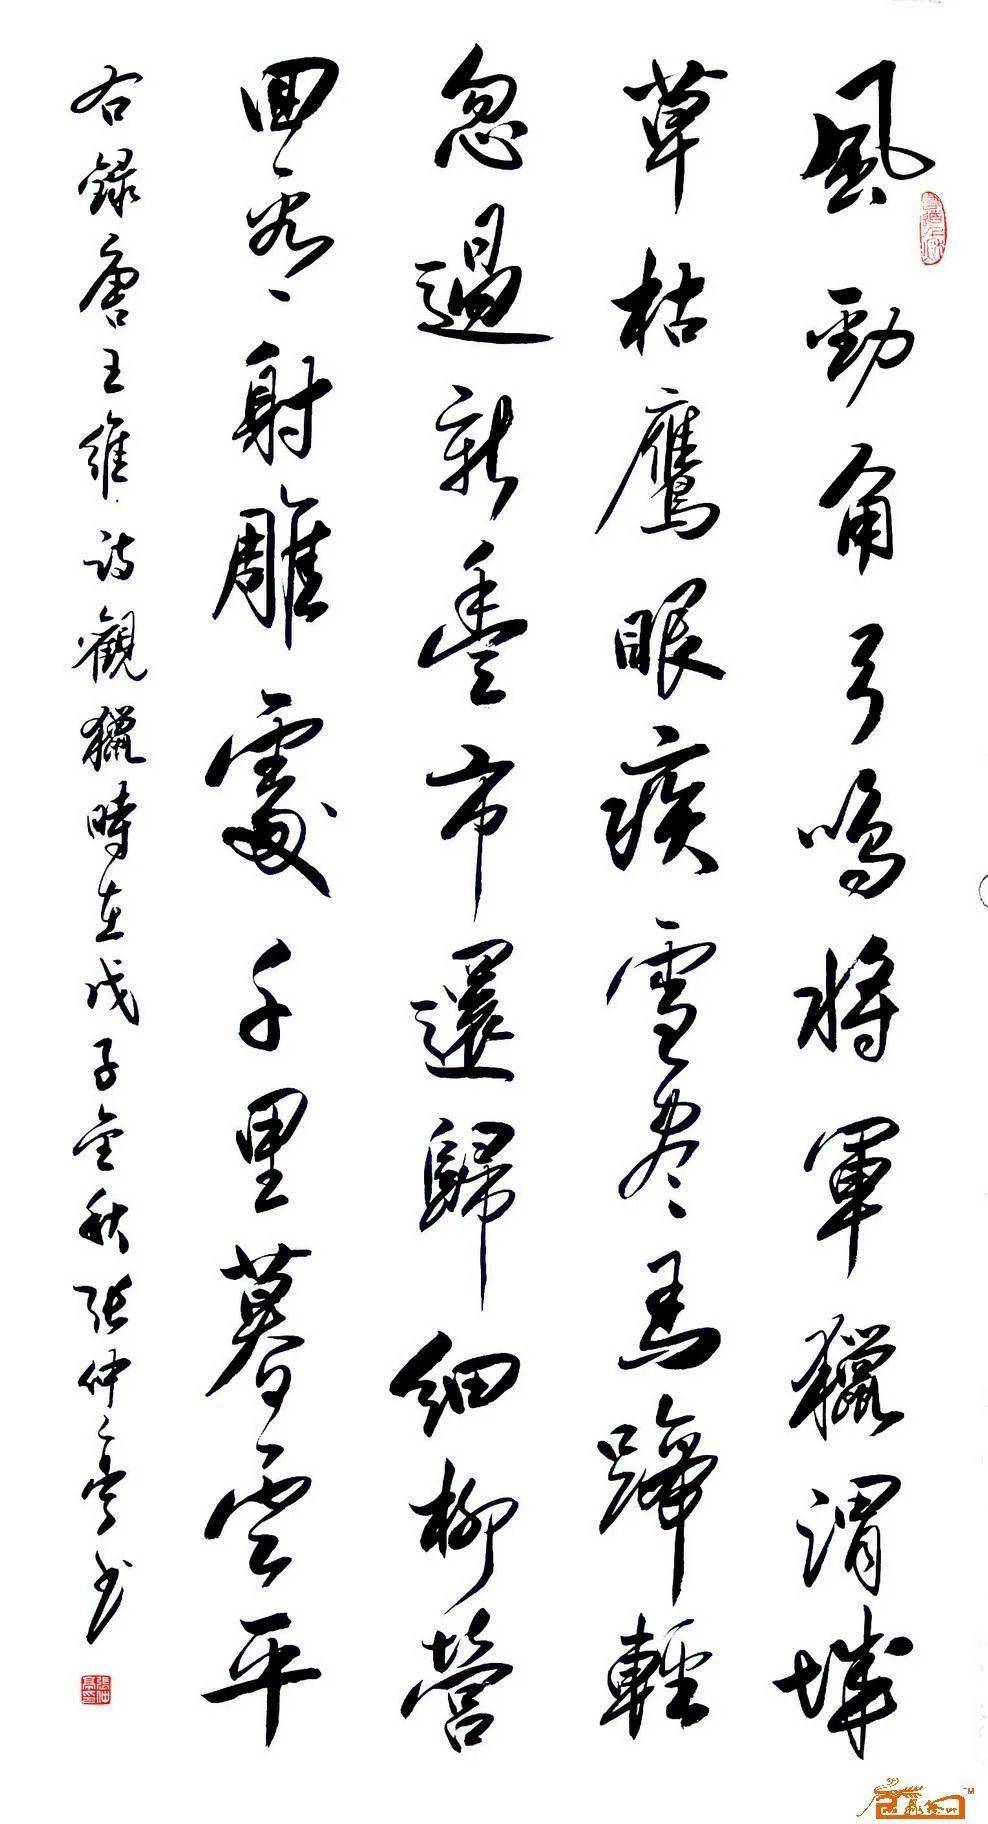 風勁角弓鳴將軍獵渭城
草枯鷹眼疾雪盡馬蹄輕
忽過新豐市還歸細柳營
回看射雕處千里暮雲平
右錄唐王維詩觀獵時在戊子金秋張仲亭書
張仲亭印